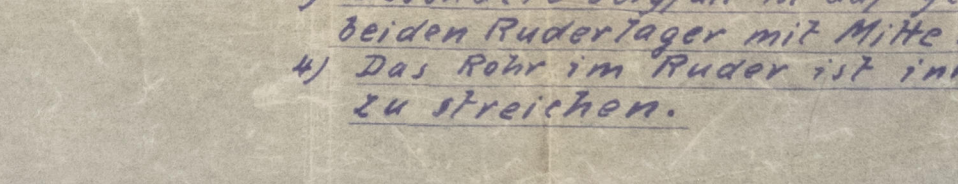 beiden Ruderlager mit Mitte
4) Das Rohr im Ruder ist
zu streichen.